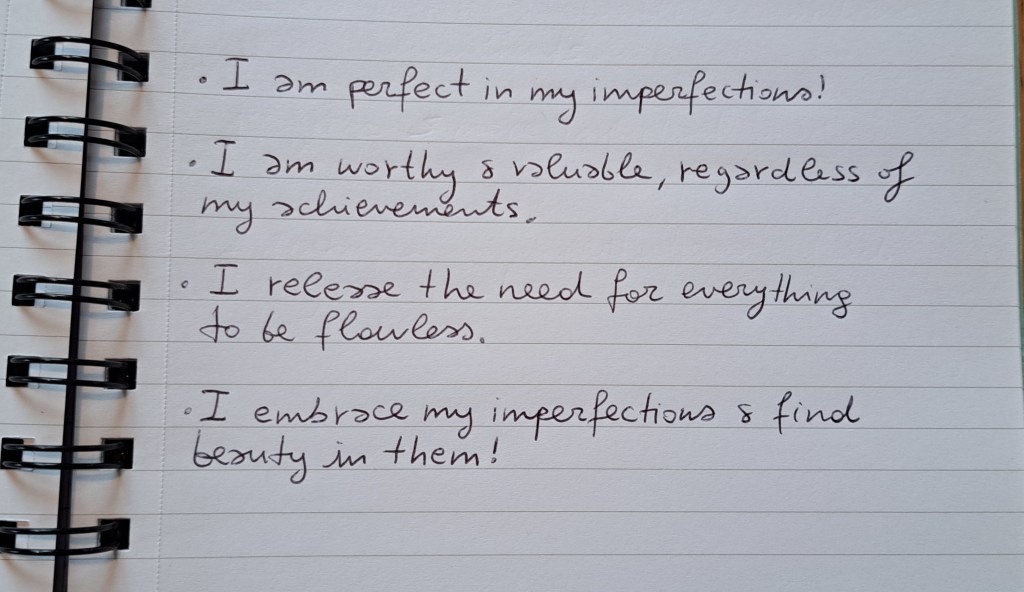 • I am perfect in my imperfections!
• I am worthy & valuable, regardless of
my achievements.
• I release the need for everything
to be flawless.
• I embrace my imperfections & find
beauty in them!